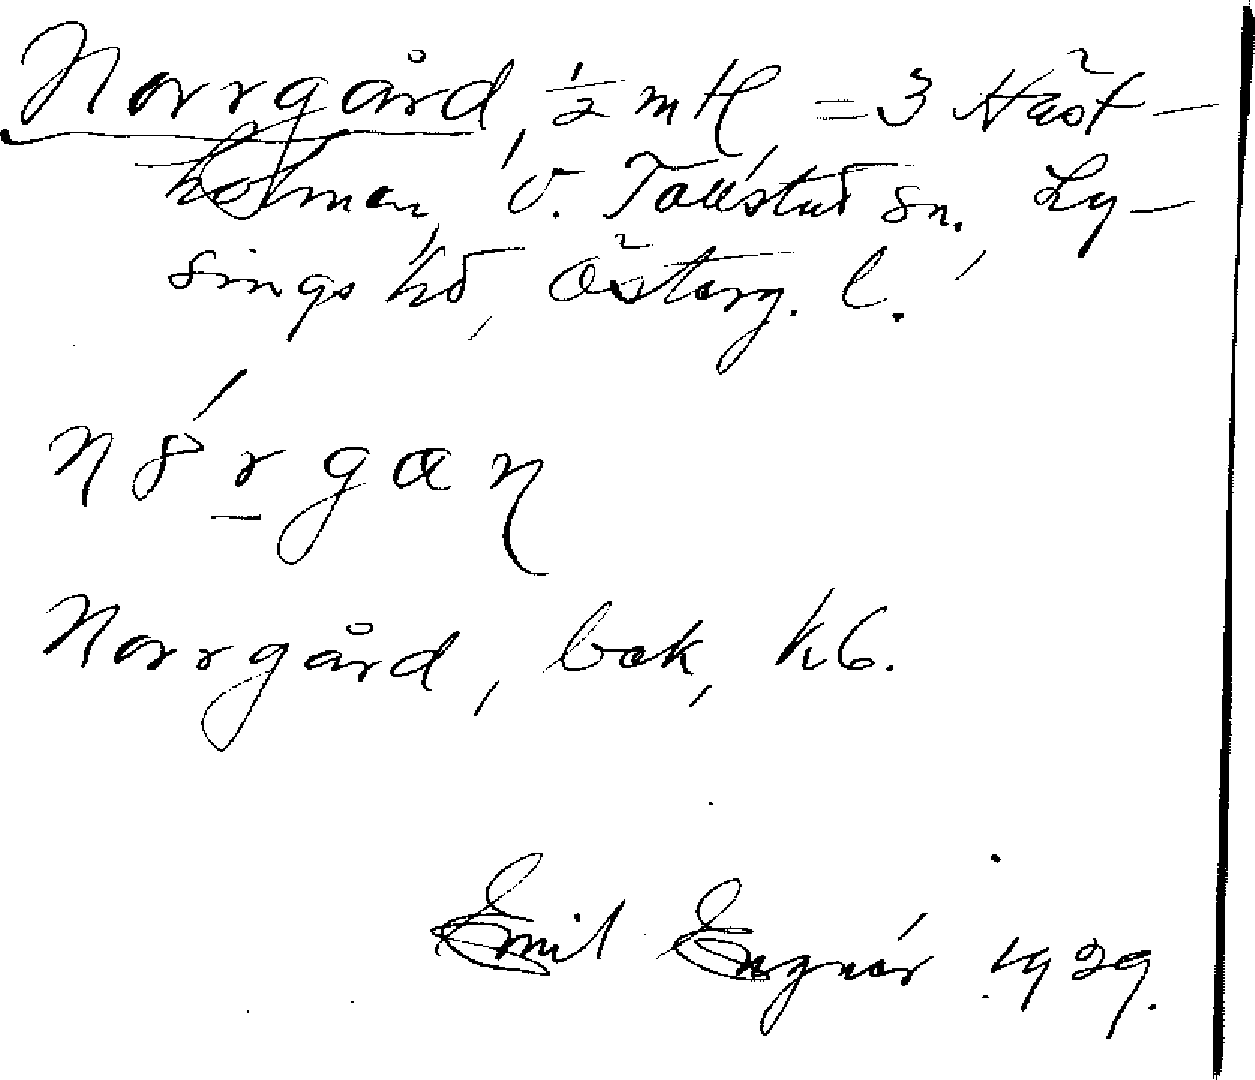 Norrgård, ½ mtl = 3 Häst-
holmen, V. Tollstad sn., Ly-
sings hd, Österg. l.
nǿrgaɳ
Norrgård, bok, kb.
Emil Engnér 1929.